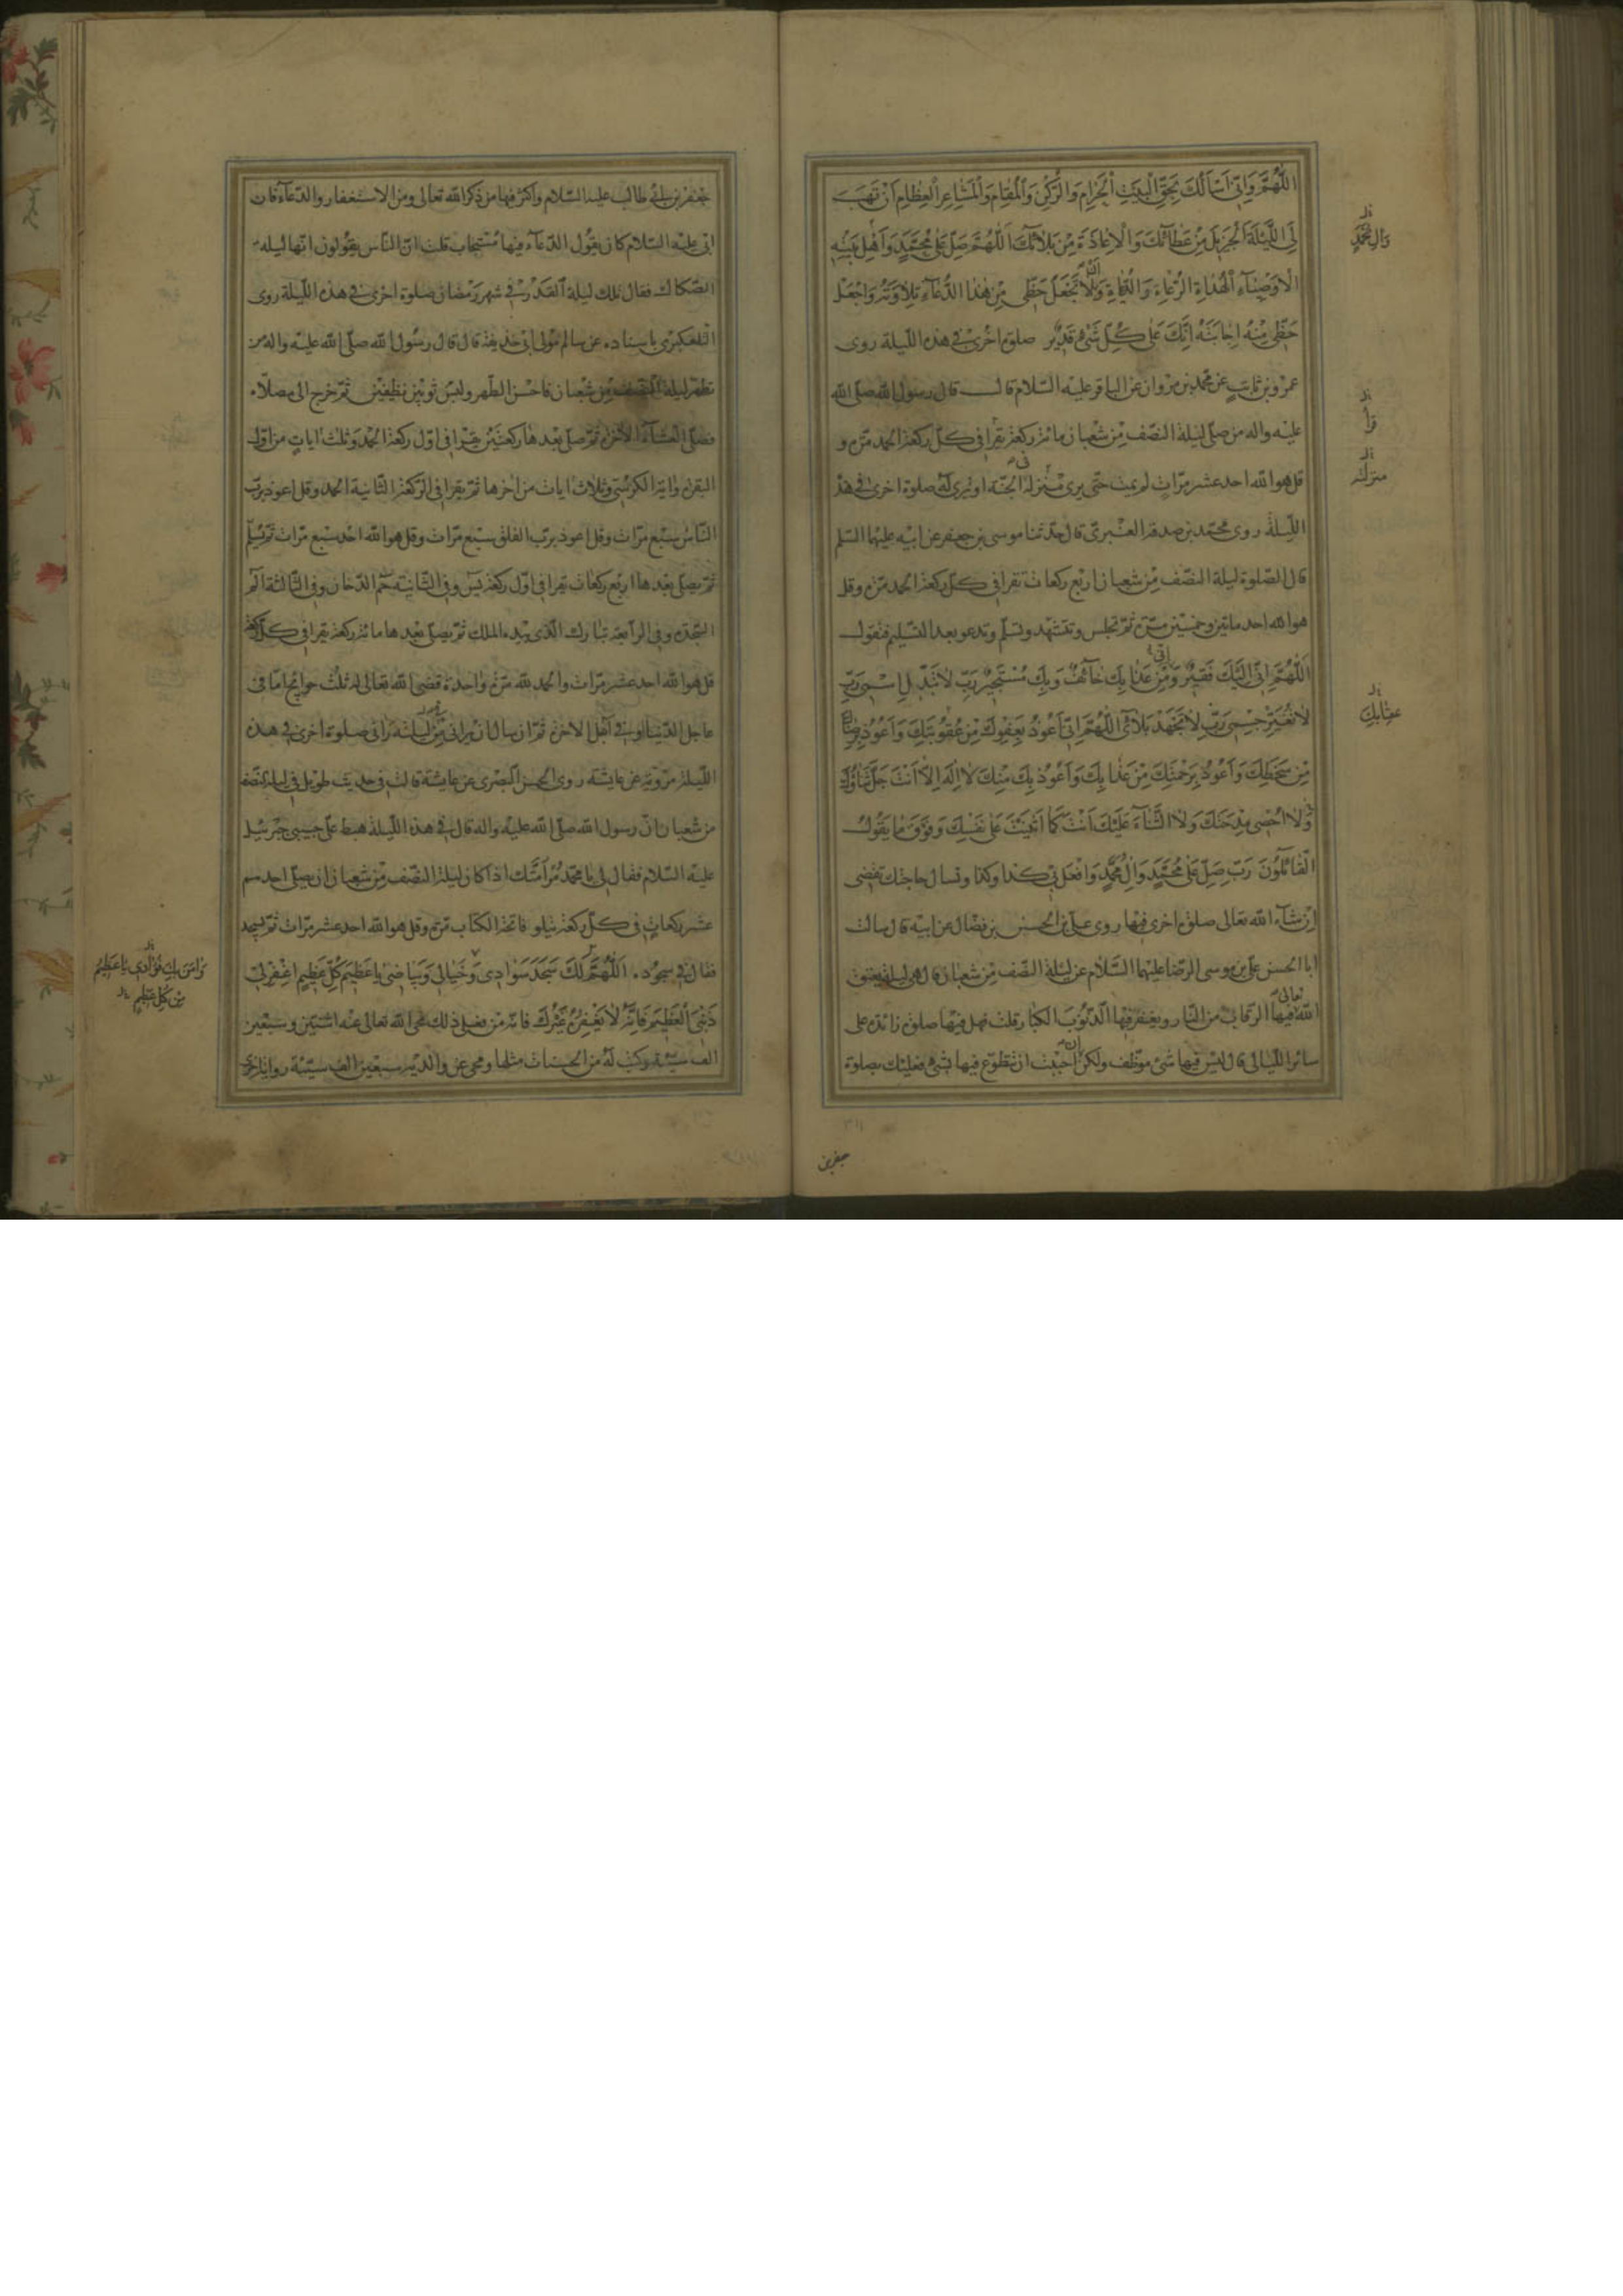 اللَّهُمَّ وَاِنّى اَسْأَلُكَ بِحَقِّ الْبَيْتِ الْحَرامِ وَالرُّكْنِ وَالْمَقامِ وَالْمَشاعِرِ الْعِظامِ اَنْ تَهَبَ
لِىَ اللَّيْلَةَ الْجَزيلَ مِنْ عَطائِكَ وَالْاِعاذَةَ مِنْ بَلائِكَ اَللّهُمَّ صَلِّ عَلى مُحَمَّدٍ وَاَهْلِ بَيْتِهِ
وَالِ مُحَمَّدٍ
الْاَوْصِيآءِ الْهُداةِ الرُّعاةِ وَ وَلا تَجْعَلْ حَظّى مِنْ هذَا الدُّعآءِ تِلاوَتَهُ وَاجْعَلْ
حَظّى مِنْهُ اِجابَتَهُ اِنَّكَ عَلى كُلِّ شَىْءٍ قَديرٌ صلوة اخرى فى هذه الليلة روى
عمرو بن ثابت عن محمد بن مروان عن الباقر عليه السلام قال قال رسول الله صلى الله
عليه واله من صلى ليلة النصف من شعبان مائة ركعة يقرا فى كل ركعة الحمد مرة و
قرأ
قل هو الله احد عشر مرات لم يمت حتى يرى منزله الجنة او يرى له صلوة اخرى فى هذه
منزله
الليلة روى محمد بن صدقة العنبرى قال حدثنا موسى بن جعفر عن ابيه عليهما السلم
قال الصلوة ليلة النصف من شعبان اربع ركعات تقرا فى كل ركعة الحمد مرة وقل
هو الله احد مائتين وخمسين مرة ثم تجلس وتتشهد وتسلم وتدعو بعد التسليم فتقول
اَللّهُمَّ اِنّى اِلَيْكَ فَقيرٌ وَمِنْ عَذابِكَ خآئِفٌ وَبِكَ مُسْتَجيرٌ رَبِّ لا تُبَدِّلِ اسْمى رَبِّ
لا تُغَيِّرْ جِسْمى رَبِّ لا تُجْهِدْ بَلائى اَللّهُمَّ اِنّى اَعُوذُ بِعَفْوِكَ مِنْ عُقُوبَتِكَ وَاَعُوذُ بِرِضاكَ
عقابك
مِنْ سَخَطِكَ وَاَعُوذُ بِرَحْمَتِكَ مِنْ عَذابِكَ وَاَعُوذُ بِكَ مِنْكَ لا اِلهَ اِلّا اَنْتَ جَلَّ ثَناؤُكَ
وَلا اُحْصى مِدْحَتَكَ وَلَا الثَّنآءَ عَلَيْكَ اَنْتَ كَما اَثْنَيْتَ عَلى نَفْسِكَ وَفَوْقَ ما يَقُولُ
الْقائِلُونَ رَبِّ صَلِّ عَلى مُحَمَّدٍ وَالِ مُحَمَّدٍ وَافْعَلْ بى كذا وكذا وتسال حاجتك تقضى
اِنْ شآء الله تعالى صلوة اخرى فيها روى على بن الحسن بن فضال عن ابيه قال سالت
ابا الحسن على بن موسى الرضا عليهما السلام عن ليلة النصف من شعبان قال هى ليلة يعتق
الله تعالى فيها الرقاب من النار ويغفر فيها الذنوب الكبار قلت فهل فيها صلوة زائدة على
سائر الليالى قال ليس فيها شئ موظف ولكن ان احببت ان تتطوع فيها بشئ فعليك بصلوة
جعفر بن
جعفر بن ابى طالب عليه السلام واكثر فيها من ذكر الله تعالى ومن الاستغفار والدعآء فان
ابى عليه السلام كان يقول الدعآء فيها مستجاب قلت ان الناس يقولون انها ليلة
الصكاك فقال تلك ليلة القدر فى شهر رمضان صلوة اخرى فى هذه الليلة روى
التلعكبرى باسناده عن سالم مولى ابى حذيفة قال قال رسول الله صلى الله عليه واله من
تطهر ليلة النصف من شعبان فاحسن الطهر ولبس ثوبين نظيفين ثم خرج الى مصلاه
فصلى العشآء الاخرة ثم صلى بعدها ركعتين يقرا فى اول ركعة الحمد وثلث ايات من اول
البقرة واية الكرسى وثلاث ايات من اخرها ثم يقرا فى الركعة الثانية الحمد وقل اعوذ برب
الناس سبع مرات وقل اعوذ برب الفلق سبع مرات وقل هو الله احد سبع مرات ثم يسلم
ثم يصلى بعدها اربع ركعات يقرا فى اول ركعة يس وفى الثانية حم الدخان وفى الثالثة الم
السجدة وفى الرابعة تبارك الذى بيده الملك ثم يصلى بعدها مائة ركعة يقرا فى كل ركعة
قل هو الله احد عشر مرات والحمد لله مرة واحدة قضى الله تعالى له ثلث حوائج اما فى
عاجل الدنيا او فى اجل الاخرة ثم ان سال ان يرانى من ليلته رانى صلوة اخرى فى هذه
الليلة مروية عن عايشة روى الحسن البصرى عن عايشة قالت فى حديث طويل فى ليلة النصف
من شعبان ان رسول الله صلى الله عليه واله قال فى هذه الليلة هبط على حبيبى جبرئيل
عليه السلام فقال لى يا محمد مر امتك اذا كان ليلة النصف من شعبان ان يصلى احدهم
عشر ركعات فى كل ركعة يتلو فاتحة الكتاب مرة وقل هو الله احد عشر مرات ثم يسجد
فقال فى سجوده اَللّهُمَّ لَكَ سَجَدَ سَوادى وَخَيالى وَبَياضى يا عَظيمَ كُلِّ عَظيمٍ اغْفِرْ لى
وَامَنَ بِكَ فُؤادى يا عَظيمُ
مِنْ كُلِّ عَظيمٍ
ذَنْبِىَ الْعَظيمَ فَاِنَّهُ لا يَغْفِرُهُ غَيْرُكَ فانه من فعل ذلك محى الله تعالى عنه اثنتين وسبعين
الف سيئة وكتب له من الحسنات مثلها ومحى عن والديه سبعين الف سيئة